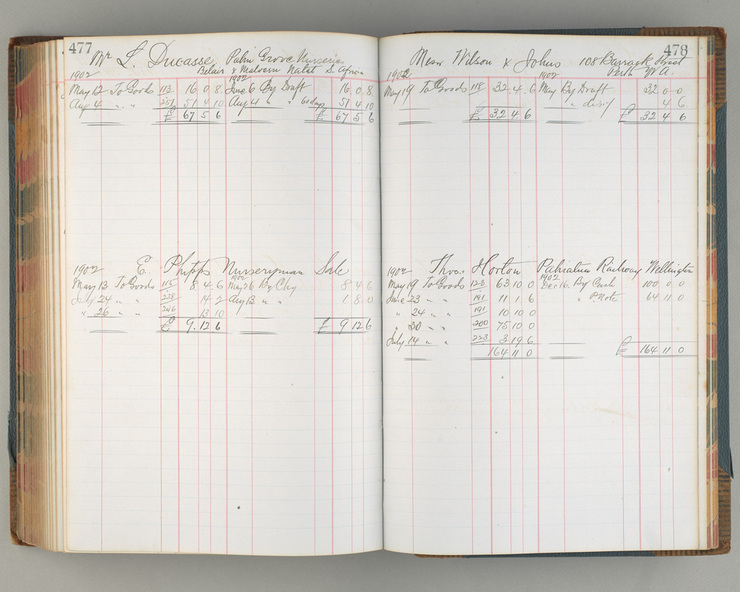 477
Mr L. Ducasse Palm Grove Nurseries
Belair & Malvern Natal S. Africa
1902 1902
May 12 To Goods 113 16 0 8 June 6 By Draft 16 0 8
Aug 4 " " 257 51 4 10 Aug 4 " " 60 days 51 4 10
£ 67 5 6 £ 67 5 6
1902 E. Phipps Nurseryman Sale
1902
May 13 To Goods 115 8 4 6 May 26 By Chq 8 4 6
July 24 " " 239 14 2 Aug 13 " " 1 8 0
" 26 " " 246 13 10
£ 9 12 6 £ 9 12 6
478
Messrs Wilson & Johns 108 Barrack Street
Perth W.A.
1902 1902
May 19 To Goods 118 32 4 6 May By Draft 32 0 0
" " 4 6
£ 32 4 6 £ 32 4 6
1902 Thos. Horton Pahiatua Railway Wellington
1902
May 19 To Goods 120 63 10 0 Dec 16 By Cash 100 0 0
June 23 " " 191 11 1 6 " PNote 64 11 0
" 24 " " 191 10 10 0
" 30 " " 200 75 10 0
July 14 " " 223 3 19 6
164 11 0 £ 164 11 0